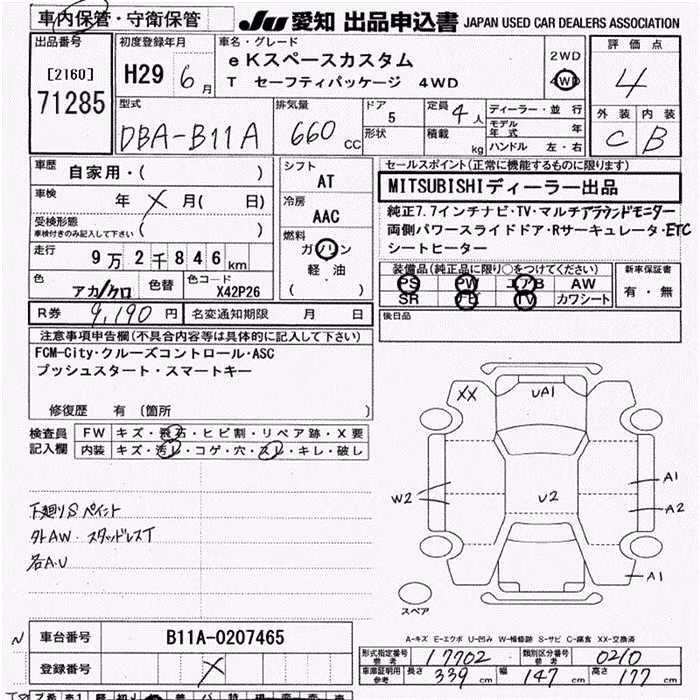 車内保管・守衛保管
JU 愛知 出品申込書 JAPAN USED CAR DEALERS ASSOCIATION
出品番号
[2160]
71285
初度登録年月
H29 6月
車名・グレード
eKスペースカスタム
T セーフティパッケージ 4WD
2WD
4WD
評価点
4
外装 内装
C B
型式
DBA-B11A
排気量
660 CC
ドア
5
形状
定員 4人
積載 kg
ディーラー・並行
モデル年式 年
ハンドル 左・右
車歴 自家用・( )
車検 年 X 月( 日)
受検形態
車検付きのみ記入して下さい ( )
走行
9万2千846km
色 アカ/クロ
色替
色コード X42P26
シフト
AT
冷房
AAC
燃料
ガソリン
軽油
( )
セールスポイント(正常に機能するものに限ります)
MITSUBISHIディーラー出品
純正7.7インチナビ・TV・マルチアラウンドモニター
両側パワースライドドア・Rサーキュレータ・ETC
シートヒーター
装備品(純正品に限り○をつけてください)
PS PW エアB AW
SR ナビ TV カワシート
新車保証書
有・無
R券 9,190円
名変通知期限 月 日
後日品
注意事項申告欄(不具合内容等は具体的に記入して下さい)
FCM-City・クルーズコントロール・ASC
プッシュスタート・スマートキー
修復歴 有 (箇所 )
検査員記入欄
FW キズ・飛石・ヒビ割・リペア跡・X要
内装 キズ・汚レ・コゲ・穴・スレ・キレ・破し
下廻りSペイント
外AW・スタッドレスT
各A.U
XX
UA1
W2
U2
A1
A2
A1
スペア
A-キズ E-エクボ U-凹み W-補修跡 S-サビ C-腐食 XX-交換済
N
車台番号 B11A-0207465
登録番号 X
形式指定番号 参考 17702
類別区分番号 参考 0210
車庫証明用参考 長さ 339cm 幅 147cm 高さ 177cm